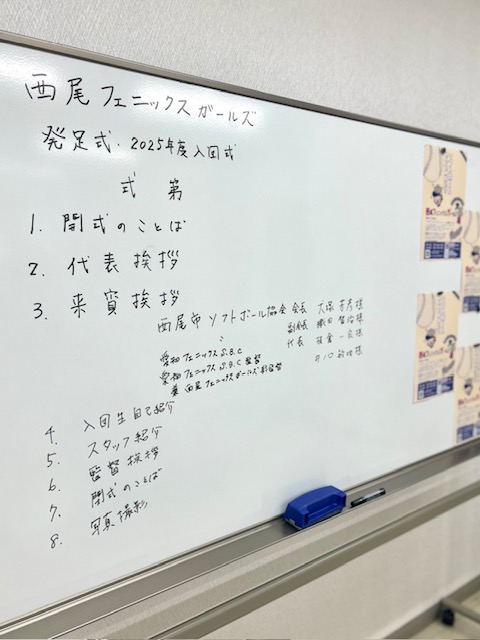 西尾フェニックスガールズ
発足式・2025年度入団式
式 第
1. 開式のことば
2. 代表挨拶
3. 来賓挨拶
西尾市ソフトボール協会 会長 大塚 様
〃 副会長 織田 様
愛知フェニックスS.B.C 代表 様
愛知フェニックスS.B.C 監督
兼 西尾フェニックスガールズ総監督 井口 様
4. 入団生自己紹介
5. スタッフ紹介
6. 監督挨拶
7. 閉式のことば
8. 写真撮影